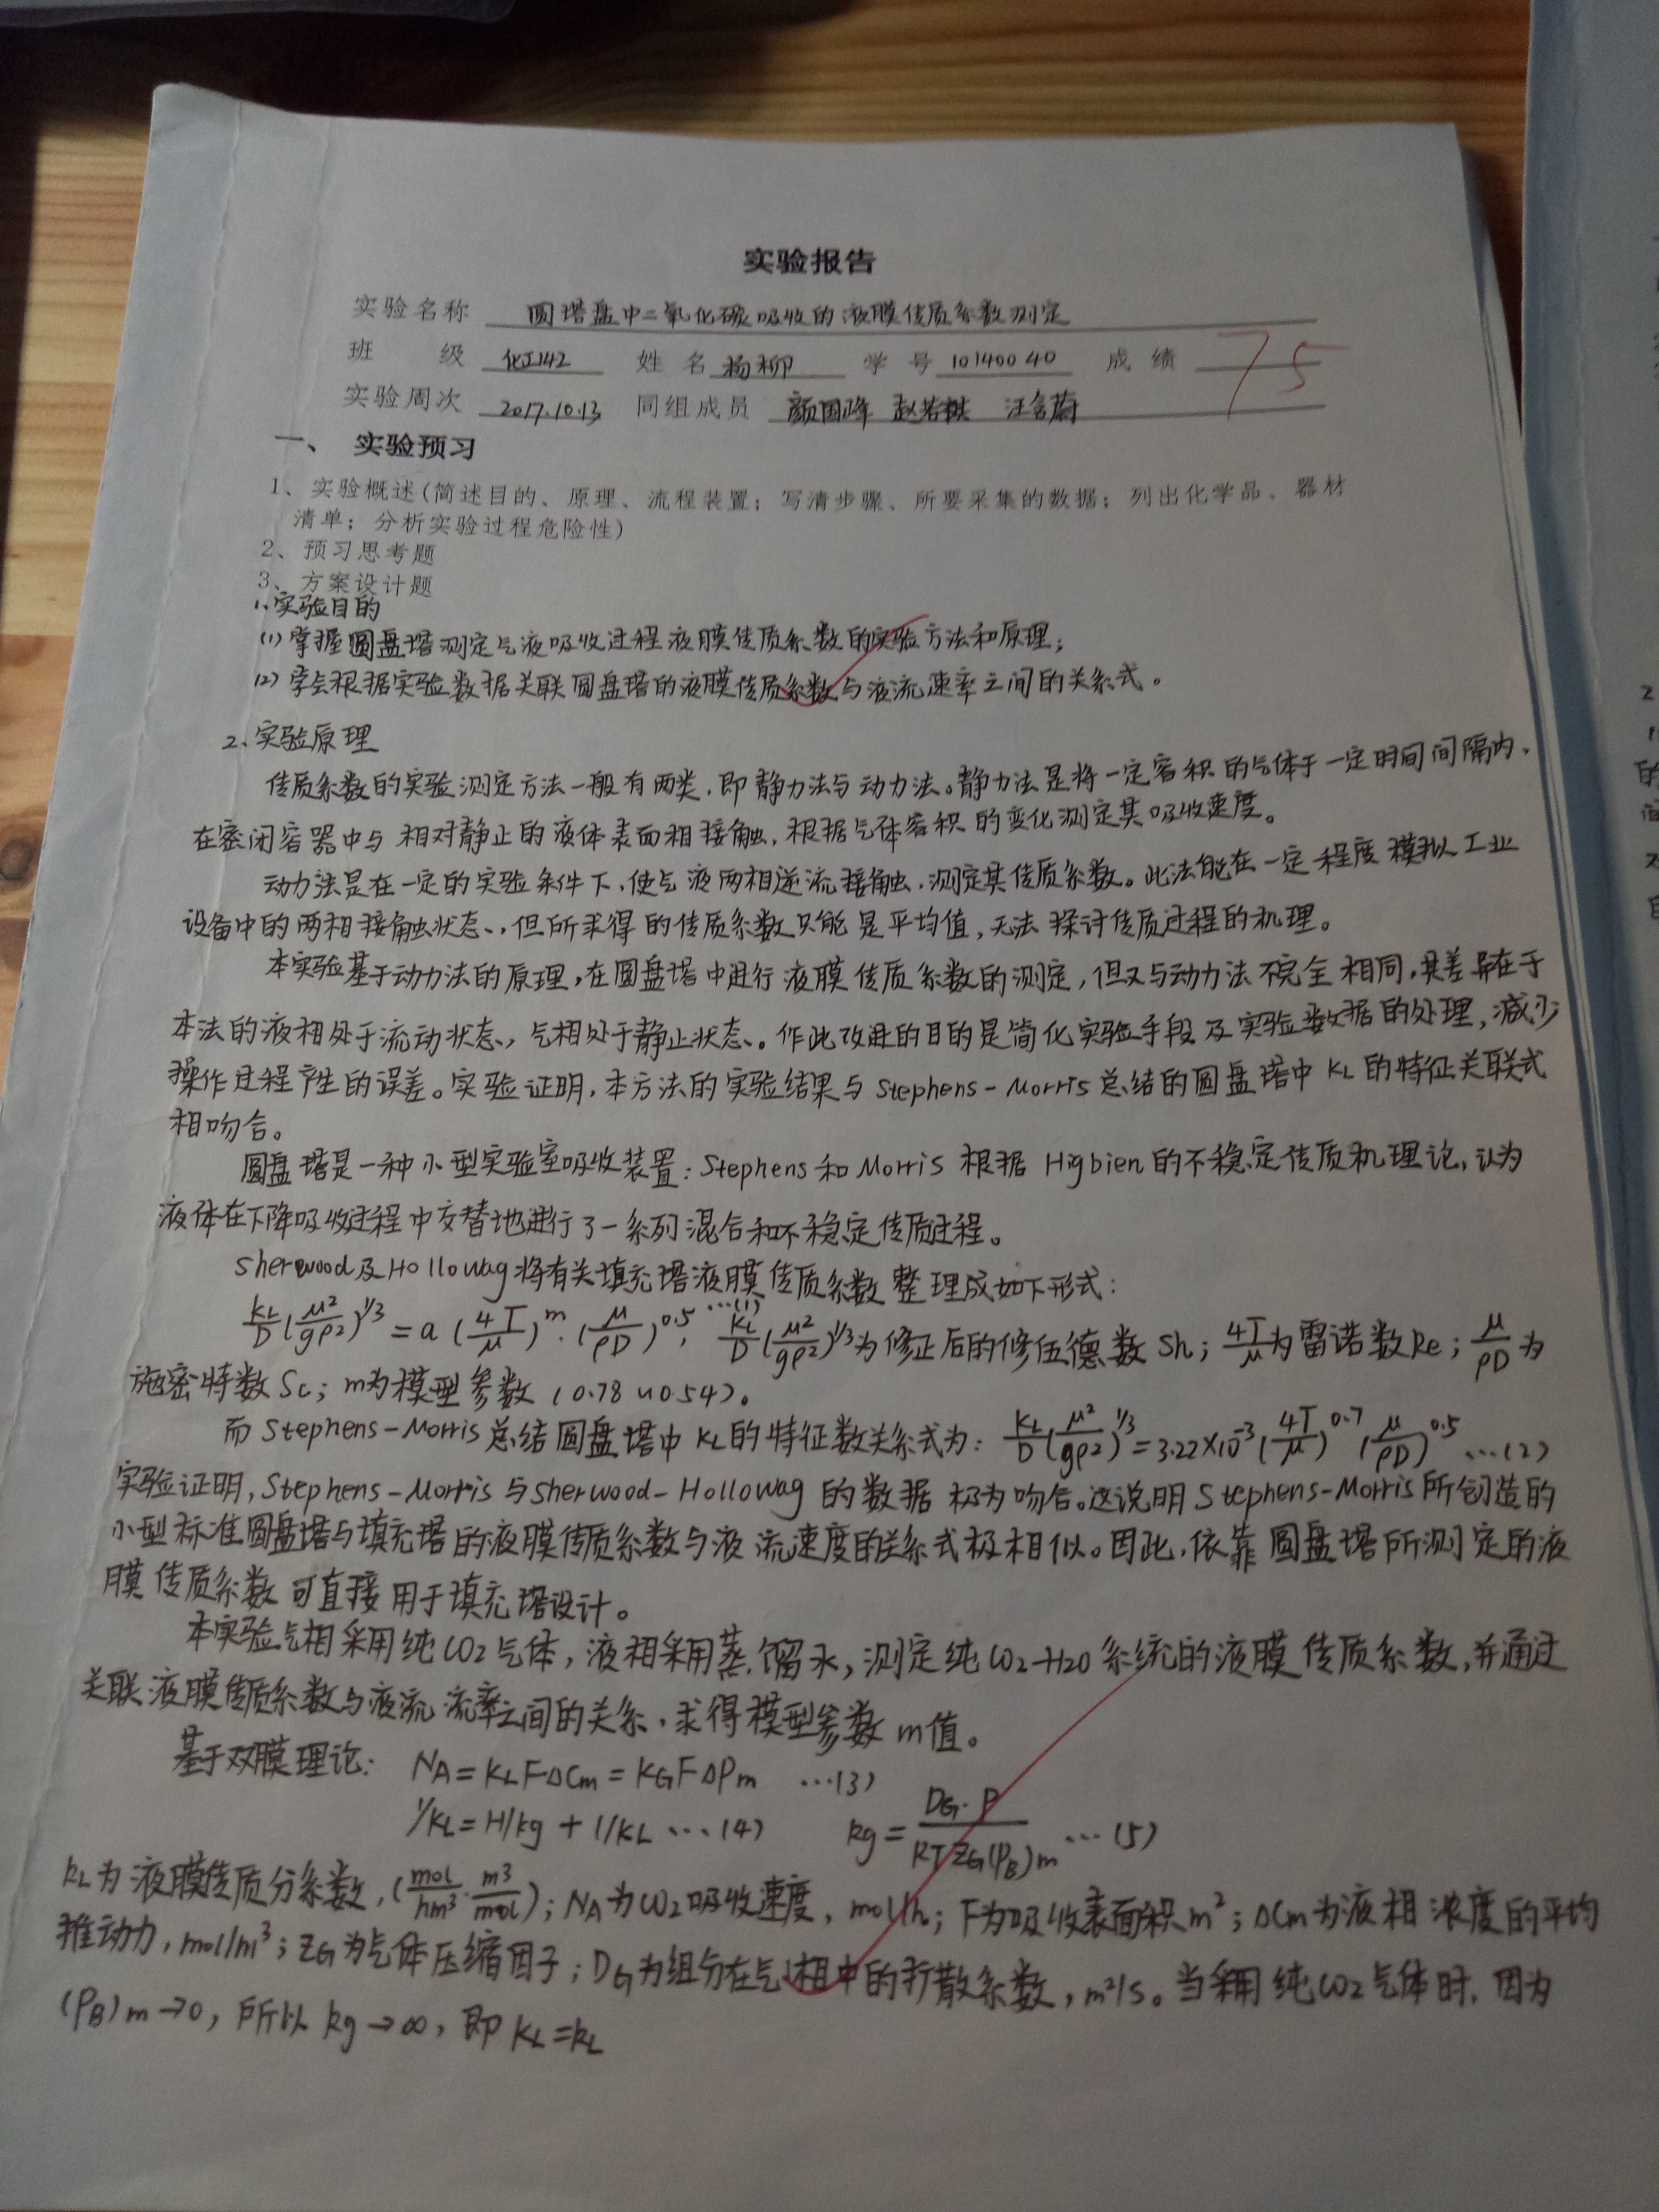 实验报告
实验名称 圆塔盘中二氧化碳吸收的液膜传质系数测定
班 级 化工142 姓名 杨柳 学号 10140040 成绩 75
实验周次 2017.10.13 同组成员 颜国峰 赵若祺 汪含蔚
一、 实验预习
1、实验概述(简述目的、原理、流程装置；写清步骤、所要采集的数据；列出化学品、器材
清单；分析实验过程危险性)
2、预习思考题
3、方案设计题
1、实验目的
(1)掌握圆盘塔测定气液吸收过程液膜传质系数的实验方法和原理；
(2)学会根据实验数据关联圆盘塔的液膜传质系数与液流速率之间的关系式。
2、实验原理
传质系数的实验测定方法一般有两类，即静力法与动力法。静力法是将一定容积的气体于一定时间间隔内，
在密闭容器中与相对静止的液体表面相接触，根据气体容积的变化测定其吸收速度。
动力法是在一定的实验条件下，使气液两相逆流接触，测定其传质系数。此法能在一定程度模拟工业
设备中的两相接触状态，但所求得的传质系数只能是平均值，无法探讨传质过程的机理。
本实验基于动力法的原理，在圆盘塔中进行液膜传质系数的测定，但又与动力法不完全相同，其差异在于
本法的液相处于流动状态，气相处于静止状态。作此改进的目的是简化实验手段及实验数据的处理，减少
操作过程产生的误差。实验证明，本方法的实验结果与Stephens-Morris总结的圆盘塔中KL的特征关联式
相吻合。
圆盘塔是一种小型实验室吸收装置：Stephens和Morris根据Higbien的不稳定传质机理论，认为
液体在下降吸收过程中交替地进行了一系列混合和不稳定传质过程。
Sherwood及Hollowag将有关填充塔液膜传质系数整理成如下形式：
KL/D(μ²/gρ²)^1/3=a(4T/μ)^m·(μ/ρD)^0.5, …(1) KL/D(μ²/gρ²)^1/3为修正后的修伍德数Sh；4T/μ为雷诺数Re；μ/ρD为
施密特数Sc；m为模型参数(0.78~0.54)。
而Stephens-Morris总结圆盘塔中KL的特征数关系式为：KL/D(μ²/gρ²)^1/3=3.22×10^-3(4T/μ)^0.7(μ/ρD)^0.5 …(2)
实验证明，Stephens-Morris与Sherwood-Hollowag的数据极为吻合。这说明Stephens-Morris所创造的
小型标准圆盘塔与填充塔的液膜传质系数与液流速度的关系式极相似。因此，依靠圆盘塔所测定的液
膜传质系数可直接用于填充塔设计。
本实验气相采用纯CO2气体，液相采用蒸馏水，测定纯CO2-H2O系统的液膜传质系数，并通过
关联液膜传质系数与液流流率之间的关系，求得模型参数m值。
基于双膜理论： NA=KLFΔCm=KGFΔPm …(3)
1/KL=H/kg+1/kL …(4) kg=DG·P/RTZG(PB)m …(5)
kL为液膜传质分系数，(mol/hm³·m³/mol)；NA为CO2吸收速度，mol/h；F为吸收表面积m²；ΔCm为液相浓度的平均
推动力，mol/m³；ZG为气体压缩因子；DG为组分在气相中的扩散系数，m²/s。当采用纯CO2气体时，因为
(PB)m→0，所以kg→∞，即KL=kL